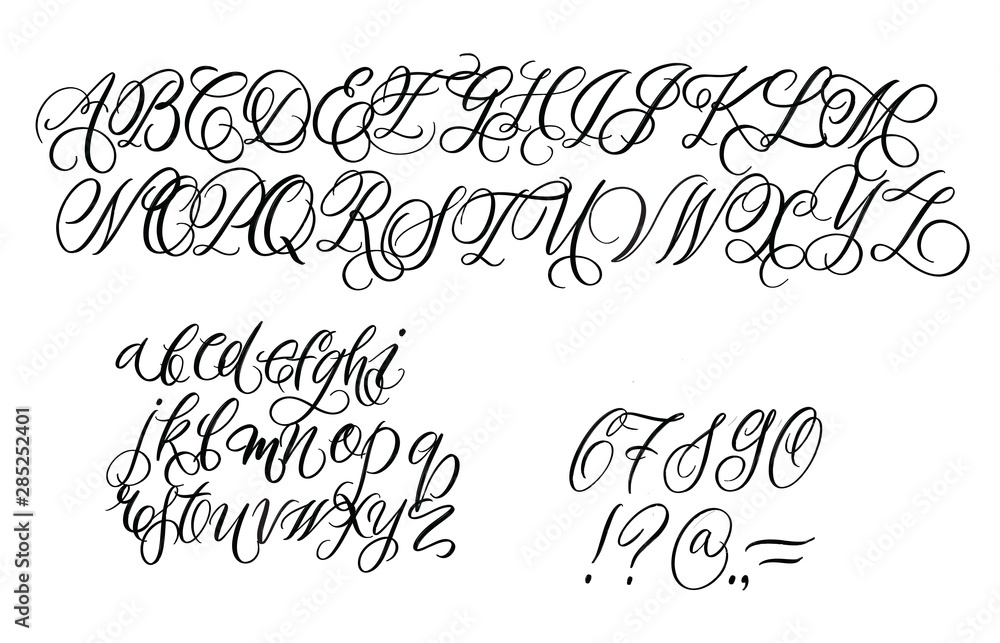 ABCDEFGHIJKLM
NOPQRSTUVWXYZ
abcdefghi
jklmnopq
rstouvwxyz
67890
!?@.,-=
Adobe Stock | #285252401